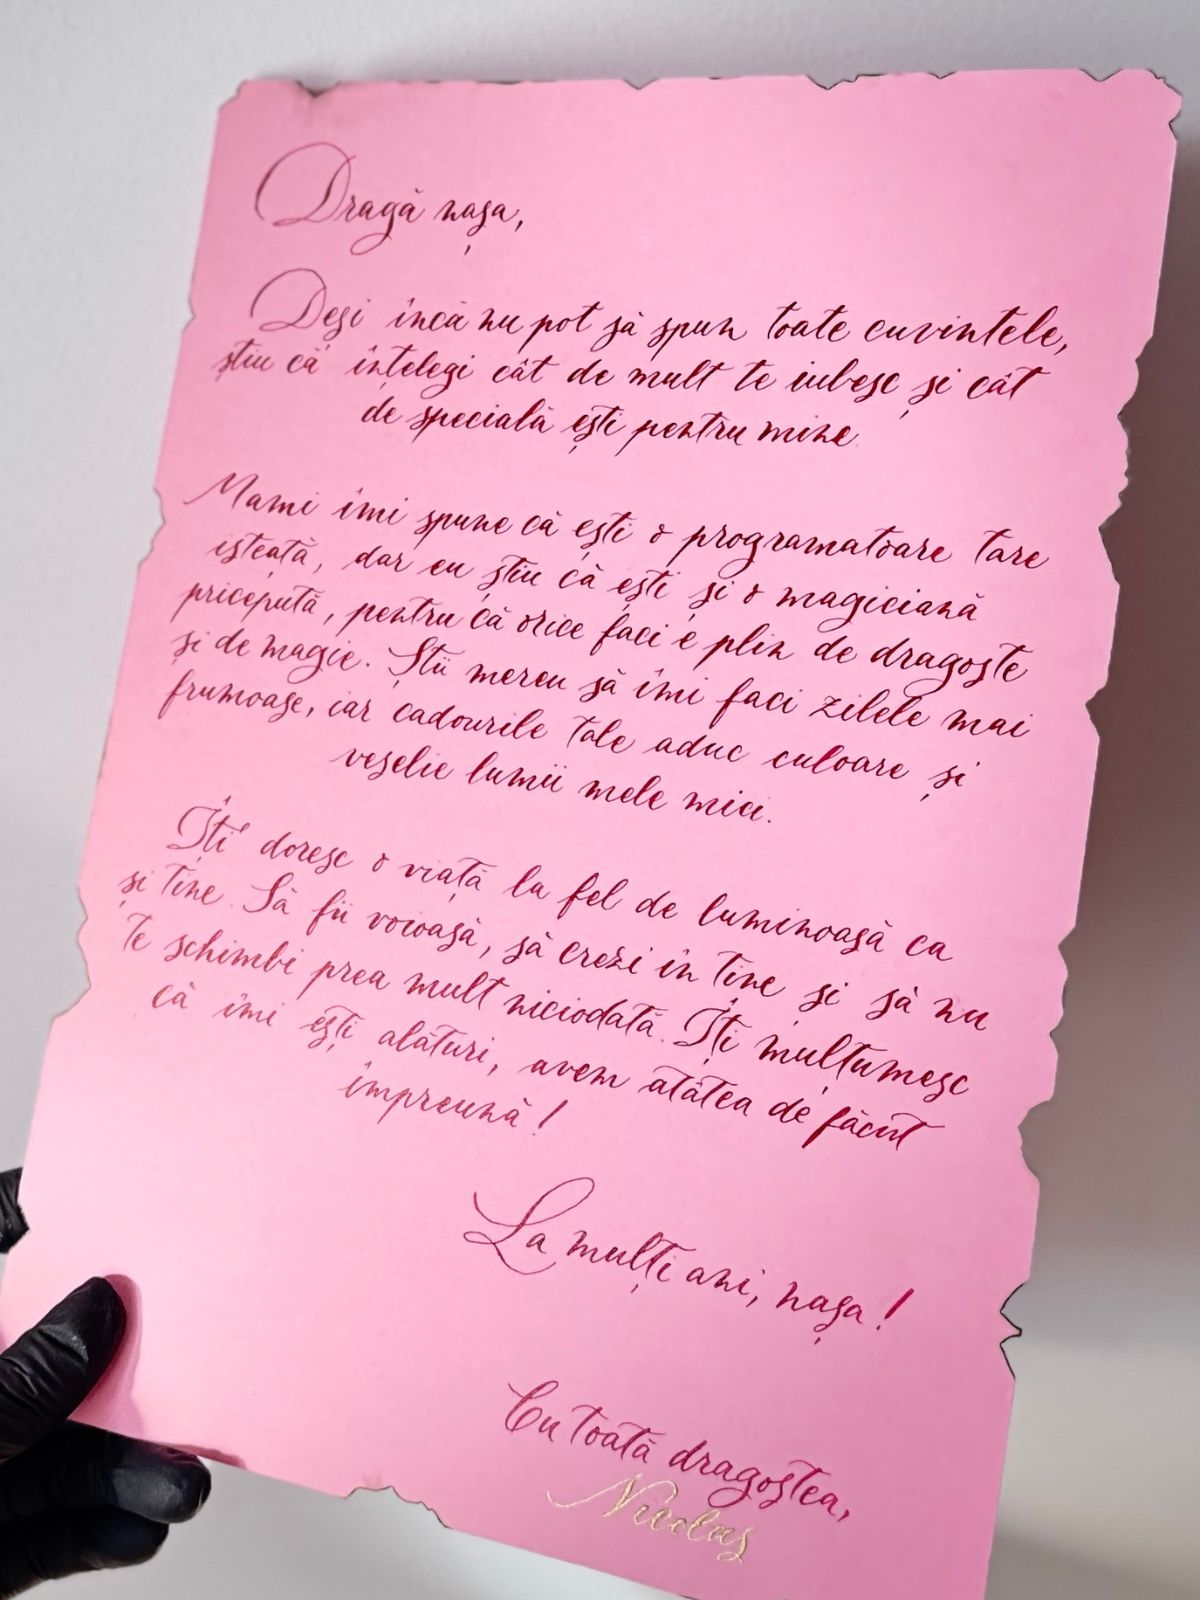 Dragă nașa,
Deși încă nu pot să spun toate cuvintele,
știu că înțelegi cât de mult te iubesc și cât
de specială ești pentru mine.
Mami îmi spune că ești o programatoare tare
isteață, dar eu știu că ești și o magiciană
pricepută, pentru că orice faci e plin de dragoste
și de magie. Știi mereu să îmi faci zilele mai
frumoase, iar cadourile tale aduc culoare și
veselie lumii mele mici.
Îți doresc o viață la fel de luminoasă ca
și tine. Să fii voioasă, să crezi în tine și să nu
te schimbi prea mult niciodată. Îți mulțumesc
că îmi ești alături, avem atâtea de făcut
împreună!
La mulți ani, nașa!
Cu toată dragostea,
Nicolas